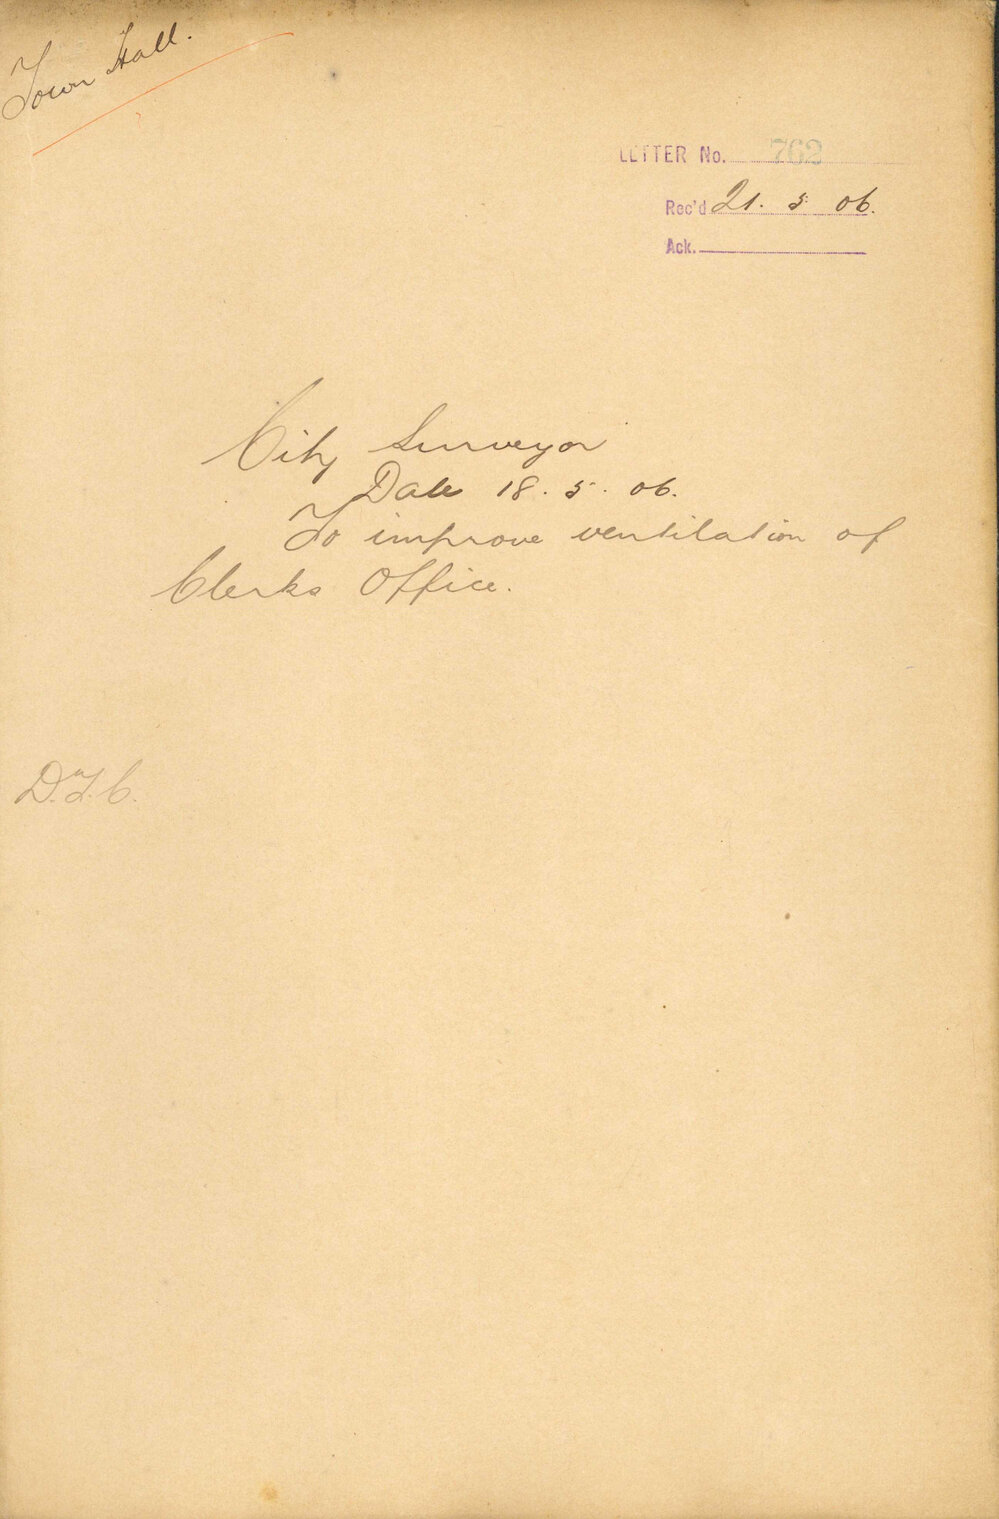 Town Hall.
LETTER No. 762
Rec'd 21. 5. 06.
Ack.
City Surveyor
Date 18. 5. 06.
To improve ventilation of
Clerks Office.
D.T.C.